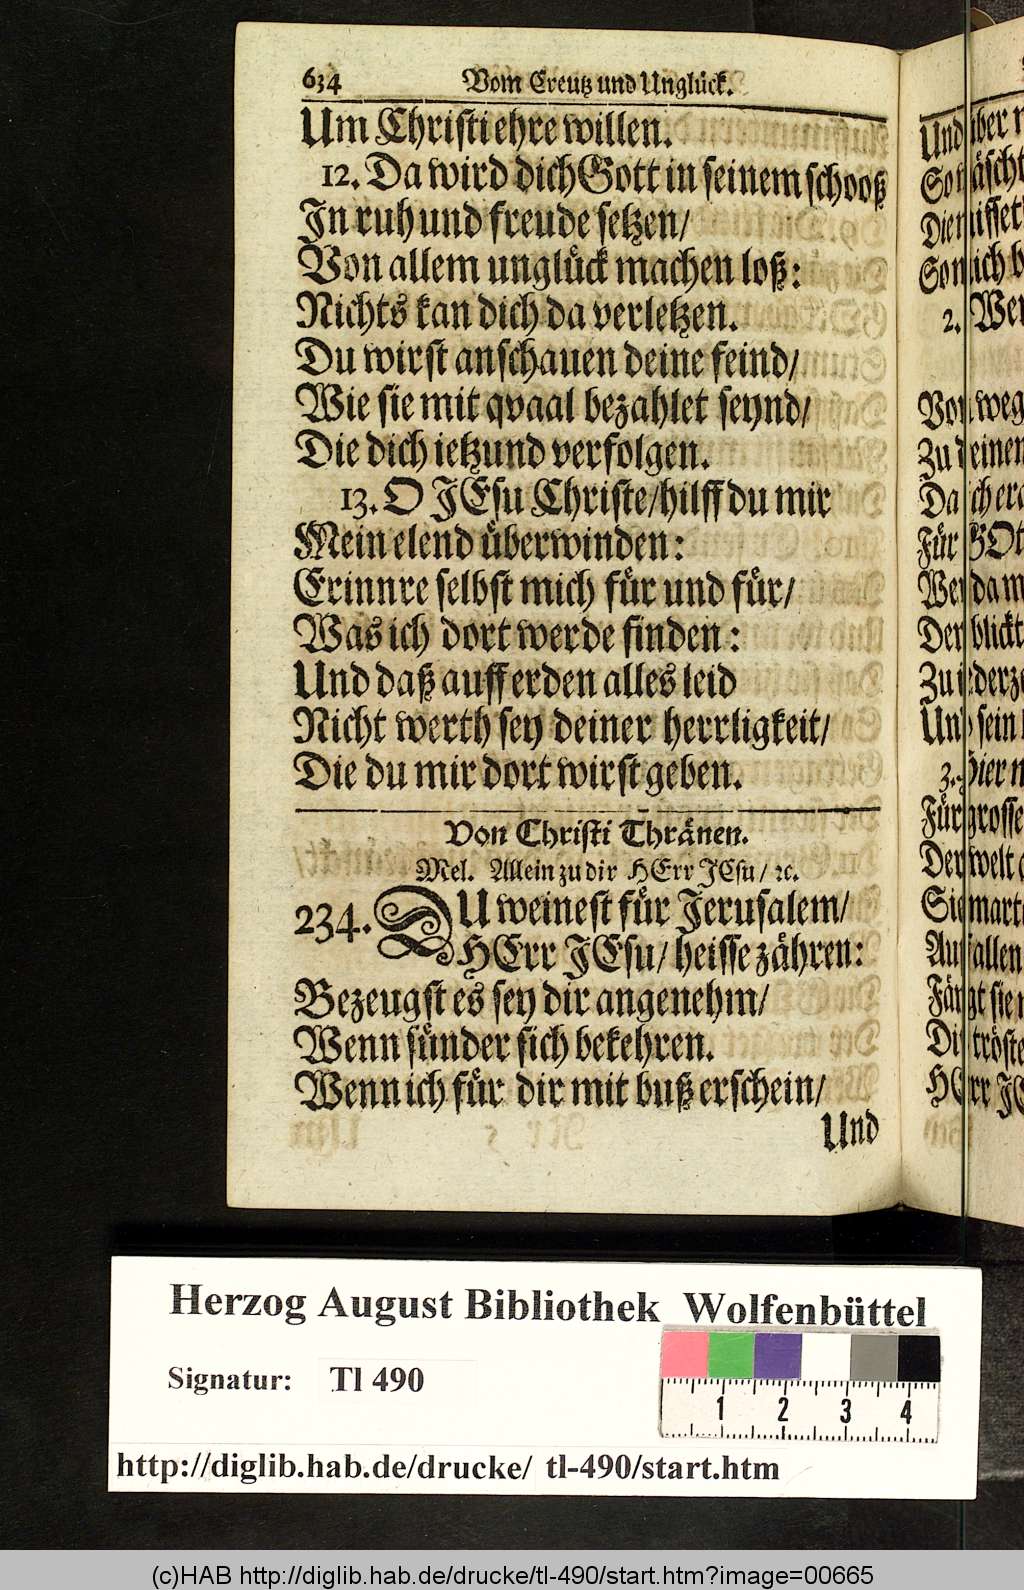 634 Vom Creutz und Unglück.
Um Christi ehre willen.
12. Da wird dich Gott in seinem schooß
In ruh und freude setzen/
Von allem unglück machen loß:
Nichts kan dich da verletzen.
Du wirst anschauen deine feind/
Wie sie mit qvaal bezahlet seynd/
Die dich ietzund verfolgen.
13. O JEsu Christe/hilff du mir
Mein elend überwinden:
Erinnre selbst mich für und für/
Was ich dort werde finden:
Und daß auff erden alles leid
Nicht werth sey deiner herrligkeit/
Die du mir dort wirst geben.
Von Christi Thränen.
Mel. Allein zu dir HErr JEsu/ ꝛc.
234. DU weinest für Jerusalem/
HErr JEsu/ heisse zähren:
Bezeugst es sey dir angenehm/
Wenn sünder sich bekehren.
Wenn ich für dir mit buß erschein/
Und
Und aber
2. Wen
Zu deinen
Für GOt
Der blickt
Und sein
3. Hier
Für grosse
Der welt
Sie
HErr JE
Herzog August Bibliothek Wolfenbüttel
Signatur: Tl 490
1 2 3 4
http://diglib.hab.de/drucke/ tl-490/start.htm
(c)HAB http://diglib.hab.de/drucke/tl-490/start.htm?image=00665